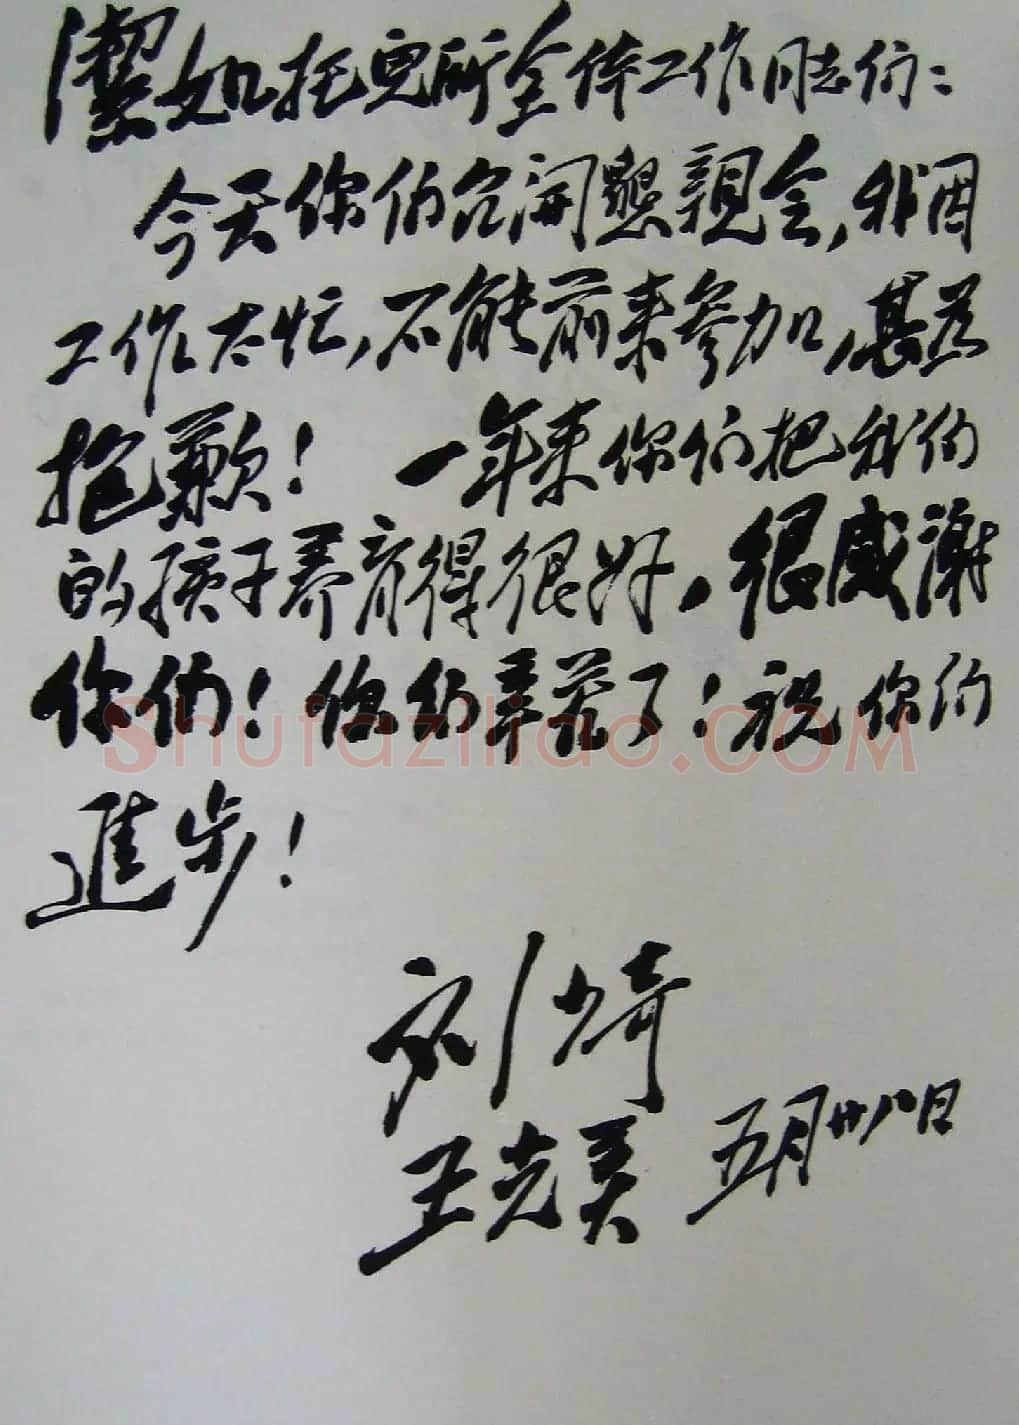 潔如托兒所全体工作同志们：
今天你们召开懇親会，我因
工作太忙，不能前来参加，甚为
抱歉！一年来你们把我们
的孩子养育得很好，很感谢
你们！你们辛苦了！祝你们
進步！
刘少奇
王光美 五月廿八日
Shufaziliao.COM